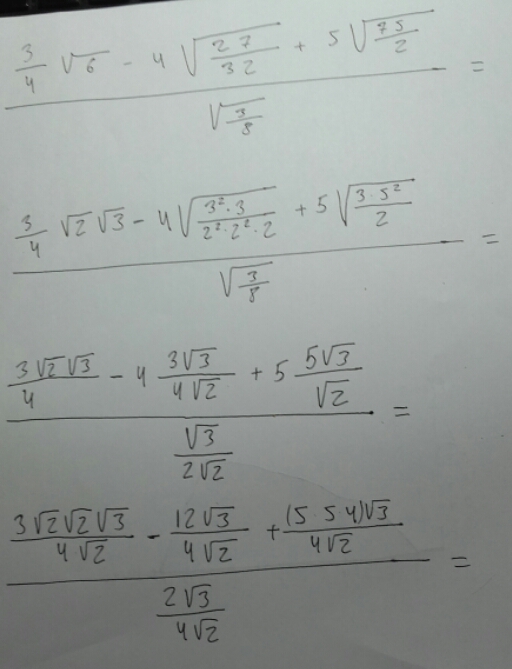 (3/4 √6 - 4√(27/32) + 5√(75/2)) / √(3/8) =
(3/4 √2 √3 - 4√((3²·3)/(2²·2²·2)) + 5√((3·5²)/2)) / √(3/8) =
((3√2√3)/4 - 4 (3√3)/(4√2) + 5 (5√3)/√2) / (√3/(2√2)) =
((3√2√2√3)/(4√2) - (12√3)/(4√2) + ((5·5·4)√3)/(4√2)) / ((2√3)/(4√2)) =